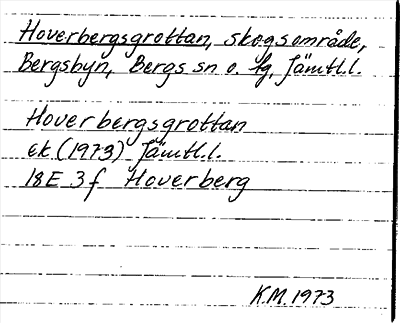 Hoverbergsgrottan, skogsområde,
Bergsbyn, Bergs sn o. tg, Jämtl.l.
Hoverbergsgrottan
ek (1973) Jämtl.l.
18E 3f Hoverberg
K.M. 1973